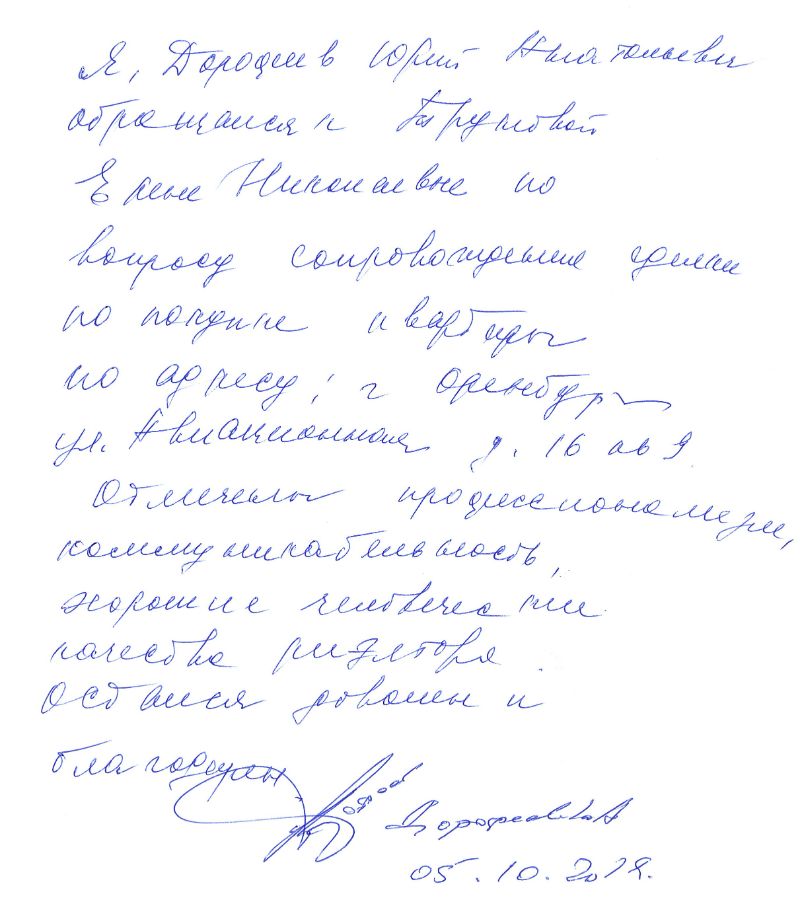 Я, Дорофеев Юрий Анатольевич
обращался к Труновой
Елене Николаевне по
вопросу сопровождения сделки
по покупке квартиры
по адресу: г Оренбург
ул. Авиационная д. 16 кв 9
Отмечаю профессионализм,
коммуникабельность,
хорошие человеческие
качества риэлтора.
Остался доволен и
благодарен
Дорофеев Ю А
05.10.2012.